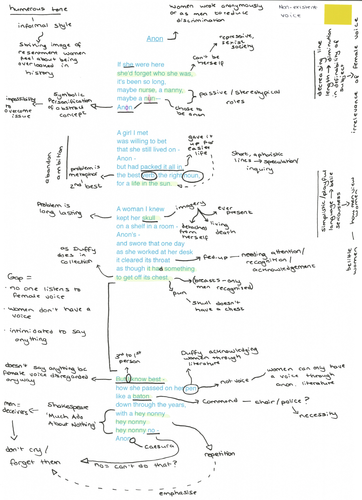 humerous tone
→ informal style
Striking image of
resentment women
feel about being
overlooked in
history
women work anonymously
or as men to reduce
discrimination
Non-existent
voice
Anon
repressive,
sexist
society
Can't be
herself
If she were here
she'd forget who she was,
it's been so long,
maybe a nurse, a nanny,
maybe a nun -
Anon
passive / stereotypical
roles
chose to be
anon
Symbolic
Personification
of abstract
concept
impossibility
to overcome
issue
decreasing line
length → diminution
in diminishing of
subject
irrelevance of female voice
abandon
ambition
A girl I met
was willing to bet
that she still lived on -
Anon -
but had packed it all in,
the best verb, the right noun,
for a life in the sun.
gave it
up for
easier
life
problem is
metaphor
2nd best
Short, aphoristic
lines → speculation/
inquiring
simplistic / playful
language → belie
seriousness
how men view
women
belittle
women
Problem is
long lasting
A woman I knew
kept her skull
on a shelf in a room -
Anon's -
and swore that one day
as she worked at her desk
it cleared its throat
as though it had something
to get off its chest.
imagery
ever
present
living
death
detached
from
herself
as Duffy
does in
collection
fed-up → needing attention/
recognition/
acknowledgement
(breasts - only
men recognised)
pun
Skull doesn't
have a chest
Gap =
- no one listens to
female voice
- women don't have a
voice
- intimidated to say
anything
3rd to 1st
person
Duffy acknowledging
women through
literature
doesn't say anything bc
female voice disregarded
anyway
But I know best -
how she passed on her pen
like a baton
down through the years,
with a hey nonny
hey nonny
hey nonny no -
Anon.
not voice
women can only have
a voice through
anon. literature
Command → choir / police?
necessity
men =
deceivers
Shakespeare
'Much Ado
About Nothing'
don't cry/
forget them
caesura
no = can't do that?
repetition
emphasise